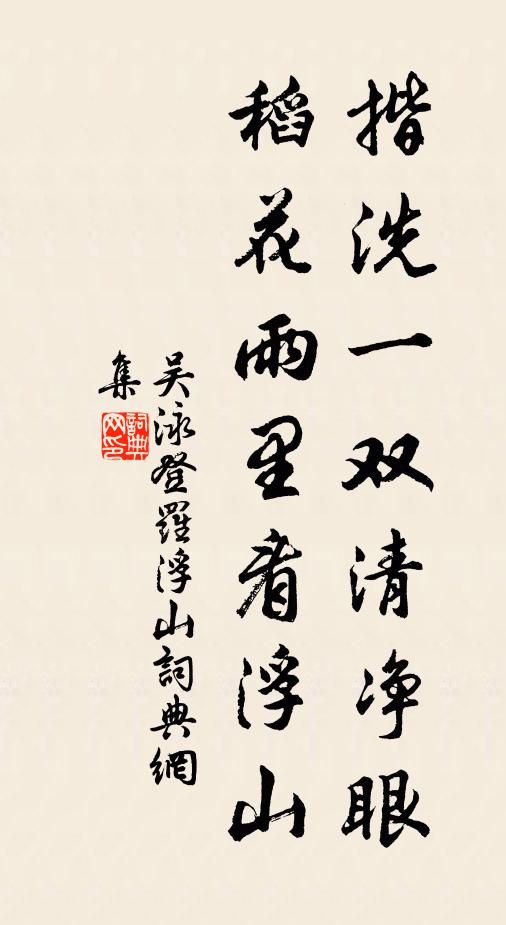 揩洗一双清净眼
稻花雨里看浮山
吴泳登羅浮山詞典網
集
詞典网印